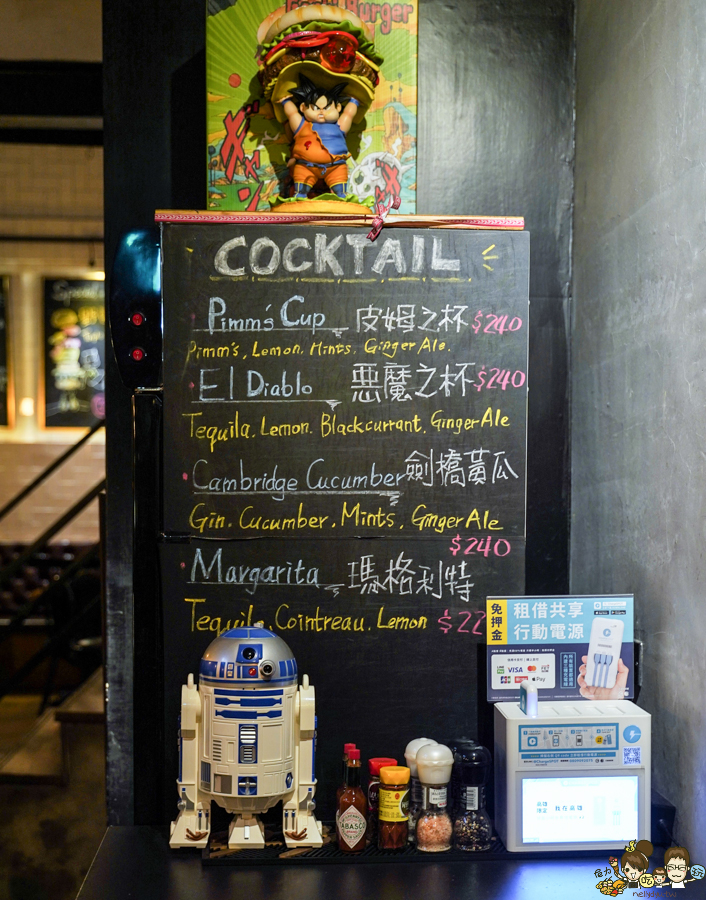 Burger
COCKTAIL
Pimm's Cup 皮姆之杯 $240
Pimm's, Lemon. Mints. Ginger Ale.
El Diablo 惡魔之杯 $240
Tequila. Lemon. Blackcurrant. Ginger Ale
Cambridge Cucumber 劍橋黃瓜
Gin. Cucumber. Mints, Ginger Ale
$240
Margarita 瑪格利特
Tequila. Cointreau. Lemon $22
免押金
租借共享
行動電源
VISA
Pay
TABASCO